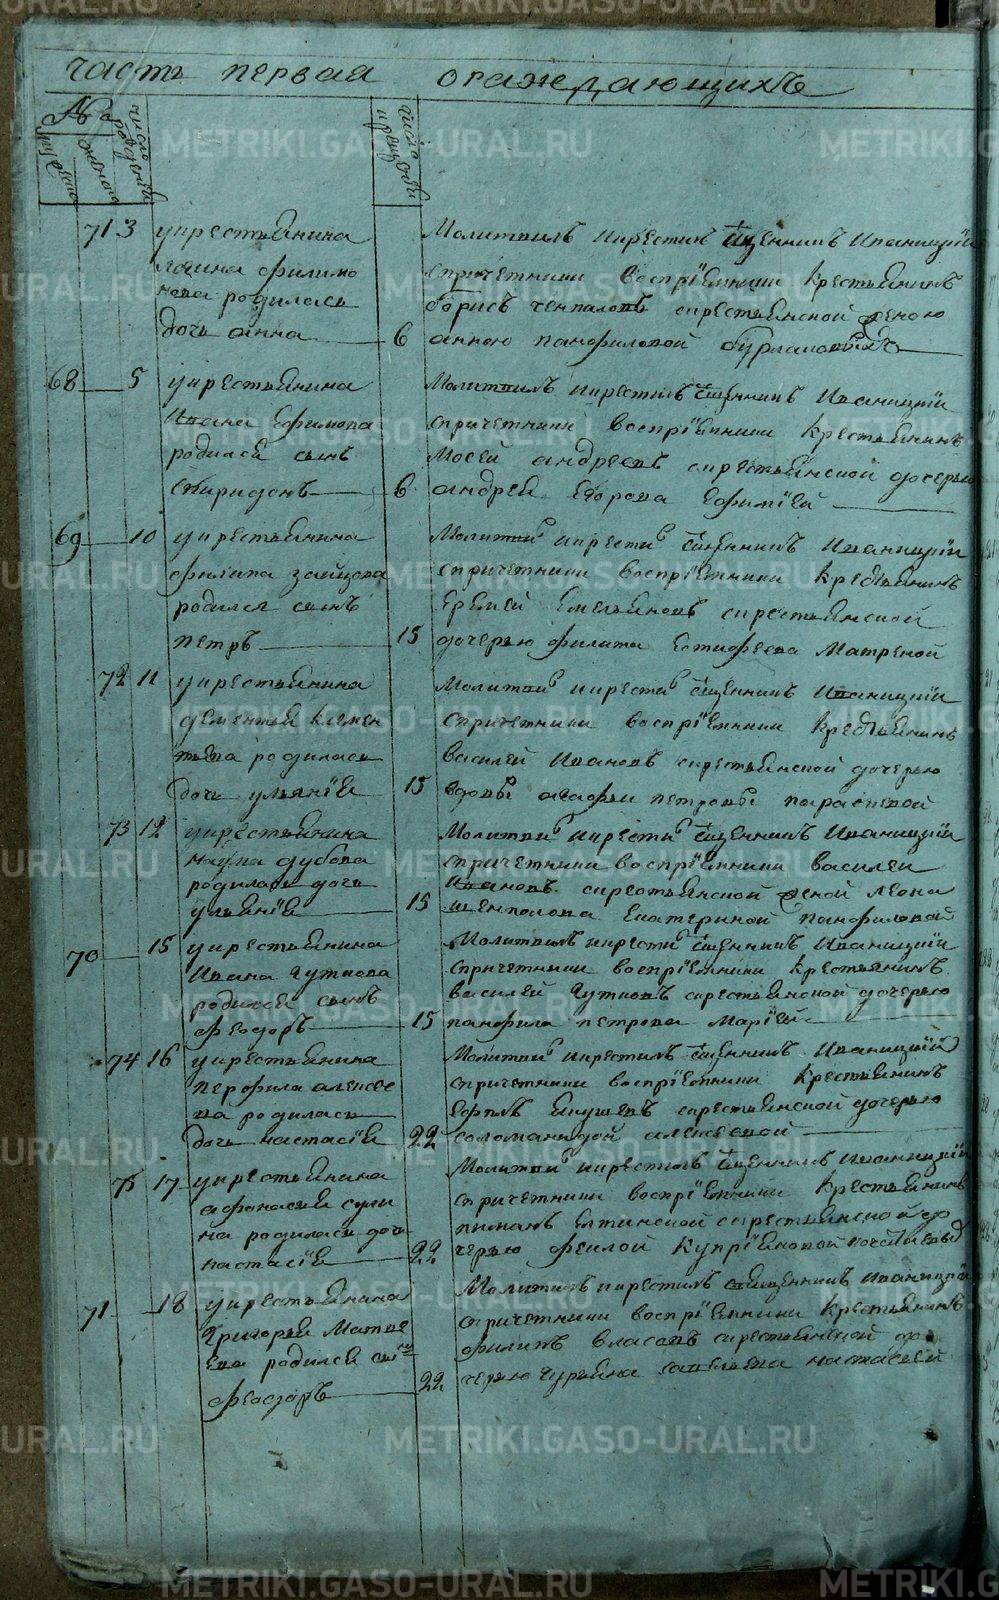 часть первая ораждающихъ
№
мужеска
женска
число рожденiй
число крещенiй
71 3 укрестьянина
логина филимо
нова родилась
дочь анна 6
Молитвилъ икрестилъ сщенникъ Иваницкiй
спричетники воспрiемники крестьянинъ
борисъ скрестьянской женою
анною панфиловой бурлаковыхъ
68 5 укрестьянина
Ивана Ефимова
родился сынъ
спиридонъ 6
Молитвилъ икрестилъ сщенникъ Иваницкiй
спричетники воспрiемники крестьянинъ
Мосей андреевъ скрестьянской дочерью
андрея Егорова Ефимiей
69 10 укрестьянина
филипа зайцова
родился сынъ
петръ 15
Молитвилъ икрестилъ сщенникъ Иваницкiй
спричетники воспрiемники крестьянинъ
Еремей Емельяновъ скрестьянской
дочерью филипа Естифеева Матреной
72 11 укрестьянина
дементья клемен
тьева родилась
дочь ульянiя 15
Молитвилъ икрестилъ сщенникъ Иваницкiй
спричетники воспрiемники крестьянинъ
василей Ивановъ скрестьянской дочерью
вдовы агафьи петровы параскевой
73 12 укрестьянина
наума дубова
родилась дочь
ульянiя 15
Молитвилъ икрестилъ сщенникъ Иваницкiй
спричетники воспрiемники василей
Ивановъ скрестьянской женой леона
Екатериной панфиловой
70 15 укрестьянина
Ивана Чуткова
родился сынъ
феодоръ 15
Молитвилъ икрестилъ сщенникъ Иваницкiй
спричетники воспрiемники крестьянинъ
василей Чутковъ скрестьянской дочерью
панфила петрова Марiей
74 16 укрестьянина
перфила алексее
ва родилась
дочь настасiя 22
Молитвилъ икрестилъ сщенникъ Иваницкiй
спричетники воспрiемники крестьянинъ
Якушевъ скрестьянской дочерью
соломанидой алексеевой
75 17 укрестьянина
афанасья
на родилась дочь
настасiя 22
Молитвилъ икрестилъ сщенникъ Иваницкiй
спричетники воспрiемники крестьянинъ
скрестьянской до
черью феклой Купрiяновой
71 18 укрестьянина
Григорья Матве
ева родился сынъ
феодоръ 22
Молитвилъ икрестилъ сщенникъ Иваницкiй
спричетники воспрiемники крестьянинъ
филипъ власовъ скрестьянской до
черью Гурьяна савельева настасьей